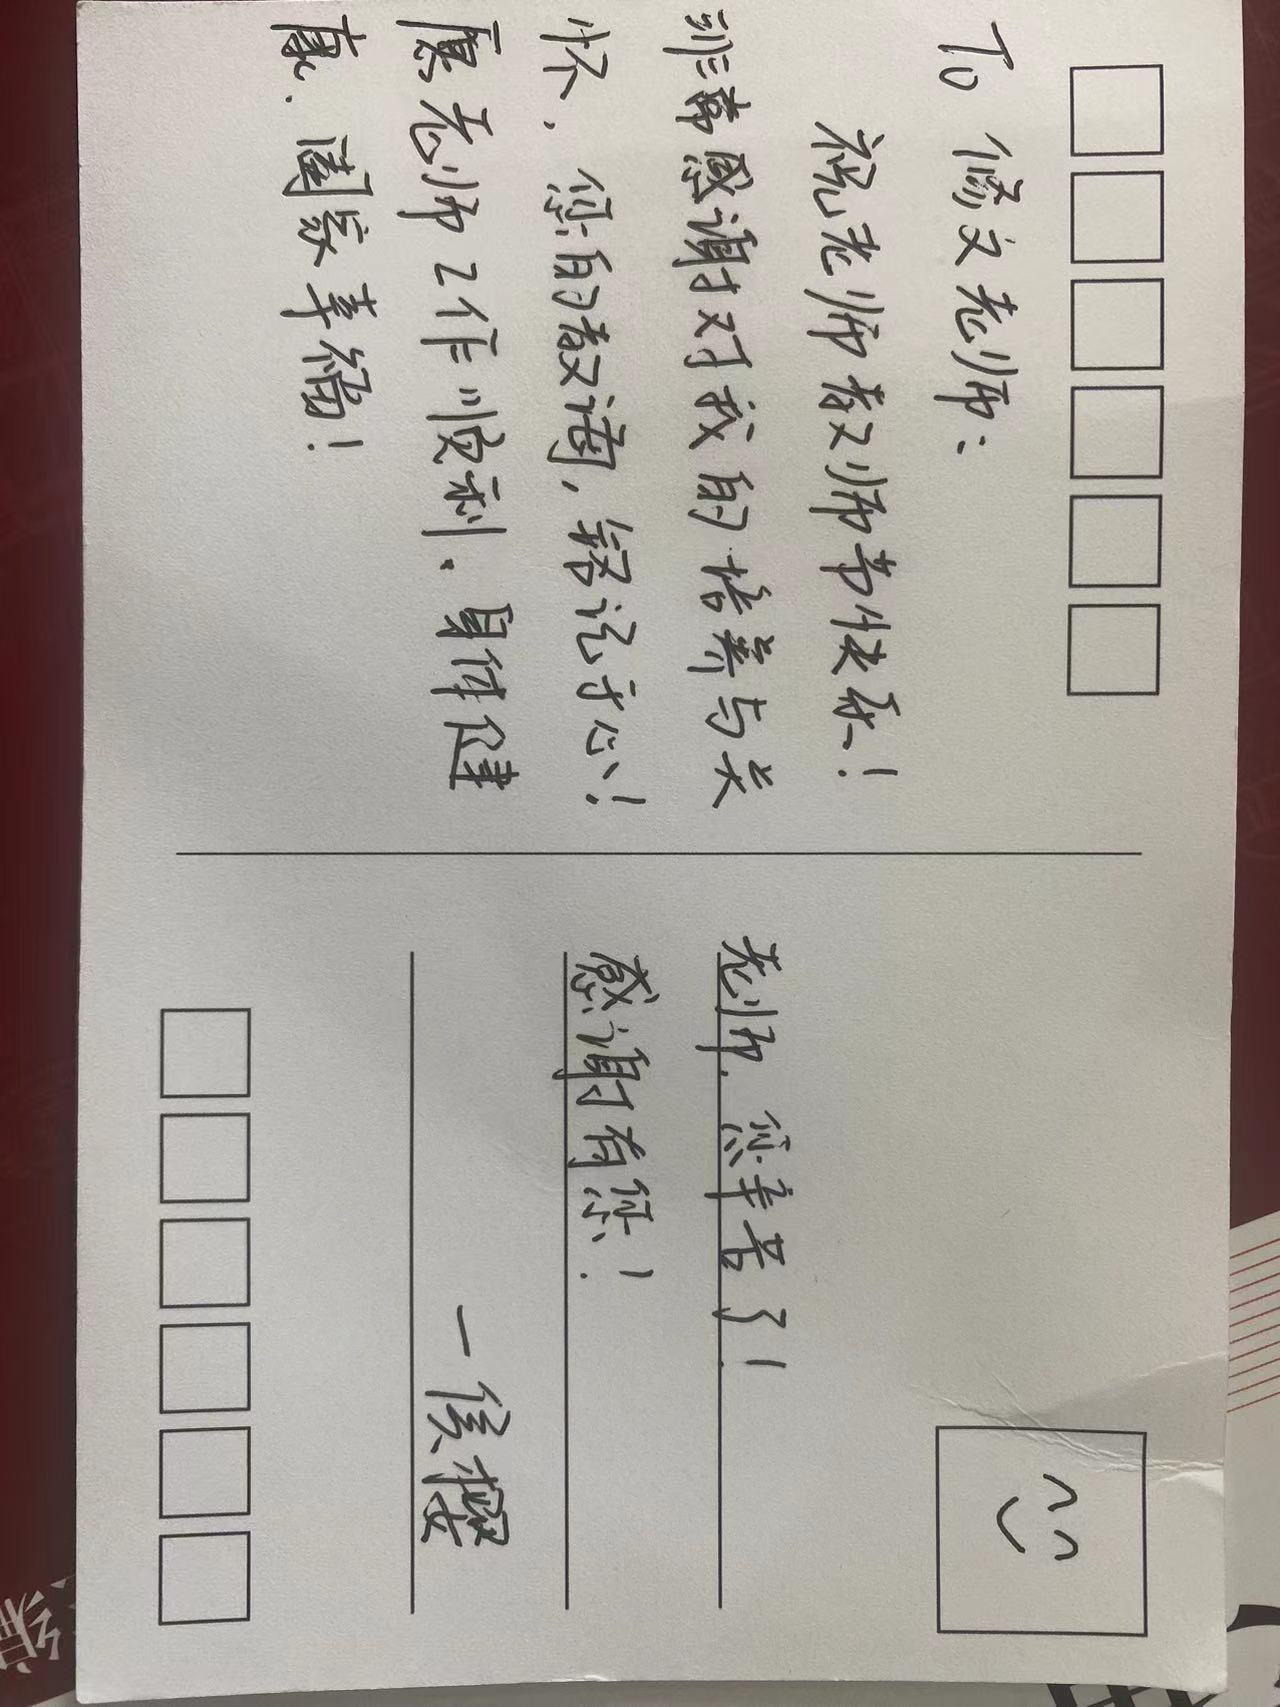 To 修文老师:
祝老师教师节快乐!
非常感谢对我的培养与关
怀、您的教诲,铭记于心!
愿老师工作顺利、身体健
康、阖家幸福!
老师、您辛苦了!
感谢有您!
一侯樱